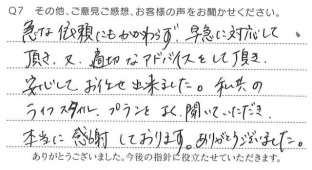 Q7 その他、ご意見ご感想、お客様の声をお聞かせください。
急な依頼にもかかわらず 早急に対応して
頂き、又、適切なアドバイスをして頂き、
安心してお任せ出来ました。私共の
ライフスタイル、プランをよく聞いていただき、
本当に感謝しております。ありがとうございました。
ありがとうございました。今後の指針に役立たせていただきます。